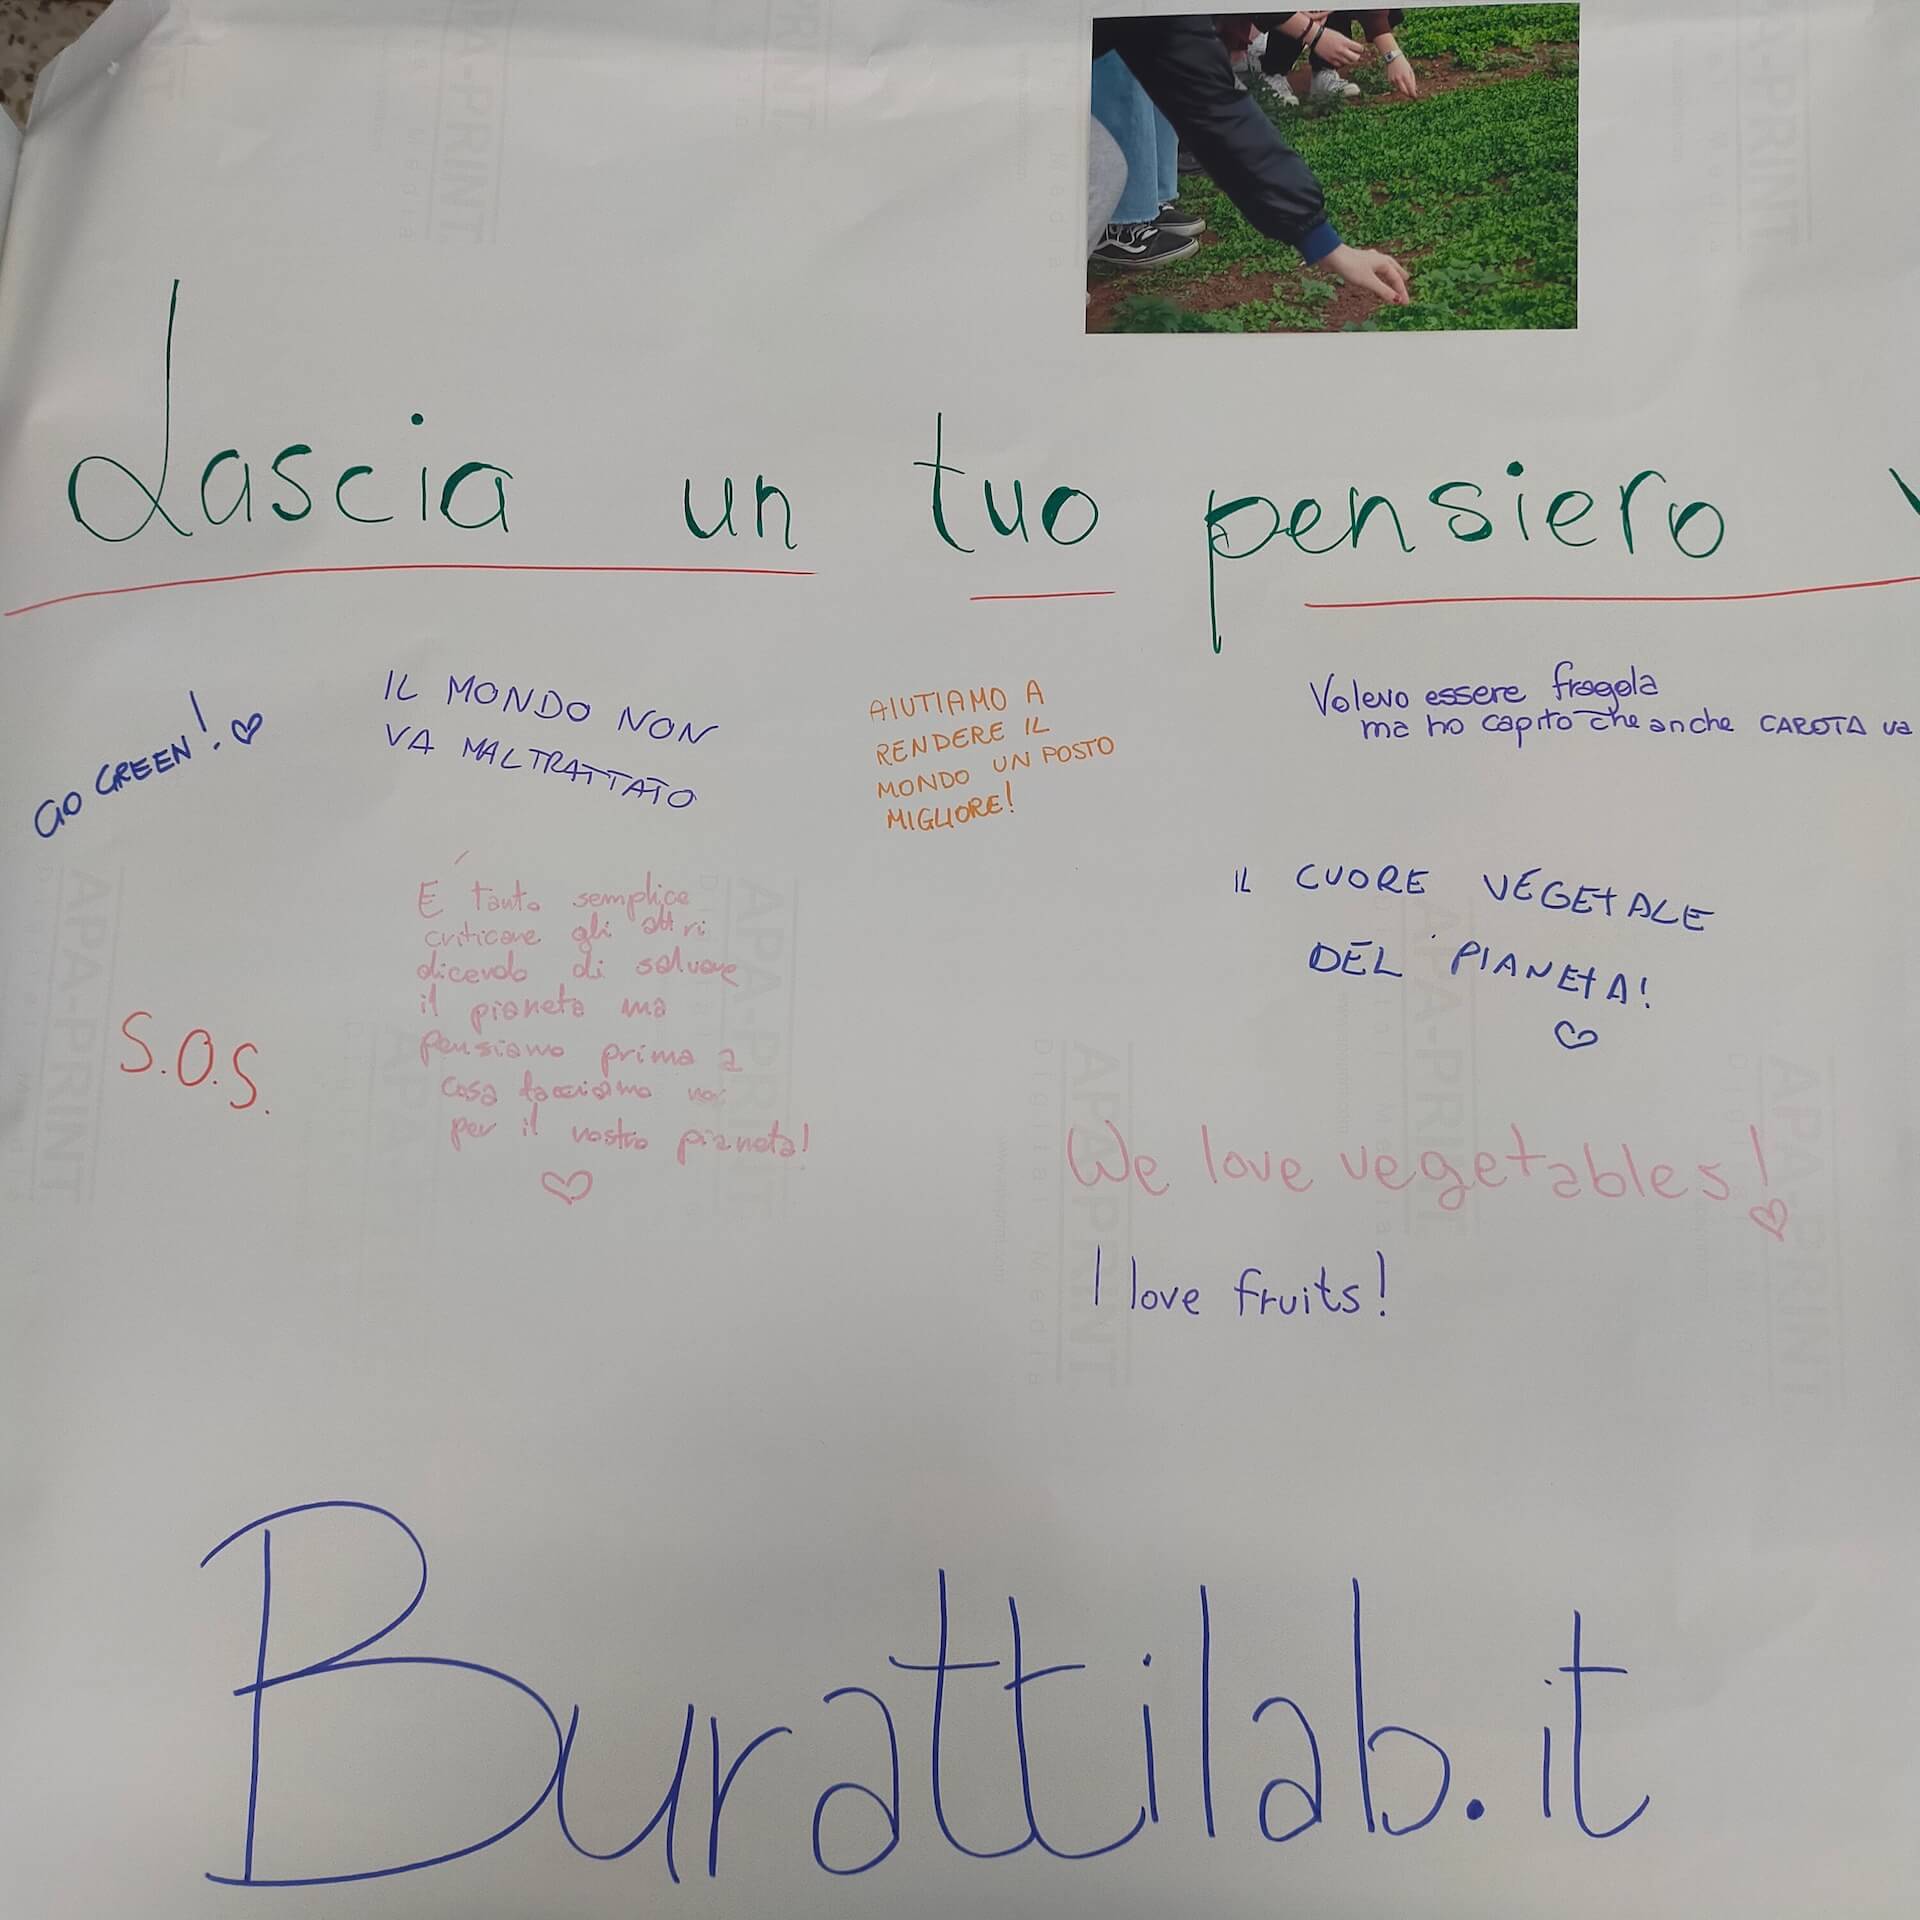 Lascia un tuo pensiero
GO GREEN!
IL MONDO NON
VA MALTRATTATO
AIUTIAMO A
RENDERE IL
MONDO UN POSTO
MIGLIORE!
Volevo essere fragola
ma ho capito che anche CAROTA va
É tanto semplice
criticare gli altri
dicendo di salvare
il pianeta ma
pensiamo prima a
cosa facciamo noi
per il nostro pianeta!
S.O.S.
IL CUORE VEGETALE
DEL PIANETA!
We love vegetables!
I love fruits!
Burattilab.it
APA-PRINT
APA-PRINT
APA-PRINT
APA-PRINT
APA-PRINT
Digital Media